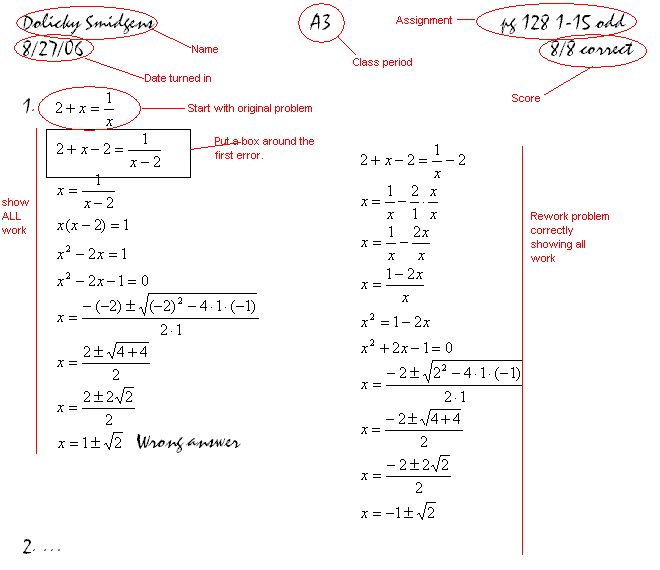 Dolicky Smidgens
8/27/06
Name
Date turned in
A3
Class period
Assignment
pg 128 1-15 odd
8/8 correct
Score
1.
2 + x = 1/x
Start with original problem
2 + x − 2 = 1/(x − 2)
Put a box around the
first error.
show
ALL
work
x = 1/(x − 2)
x(x − 2) = 1
x² − 2x = 1
x² − 2x − 1 = 0
x = (−(−2) ± √((−2)² − 4·1·(−1)))/(2·1)
x = (2 ± √(4 + 4))/2
x = (2 ± 2√2)/2
x = 1 ± √2 Wrong answer
2 + x − 2 = 1/x − 2
x = 1/x − 2/1 · x/x
x = 1/x − 2x/x
x = (1 − 2x)/x
x² = 1 − 2x
x² + 2x − 1 = 0
x = (−2 ± √(2² − 4·1·(−1)))/(2·1)
x = (−2 ± √(4 + 4))/2
x = (−2 ± 2√2)/2
x = −1 ± √2
Rework problem
correctly
showing all
work
2. ...